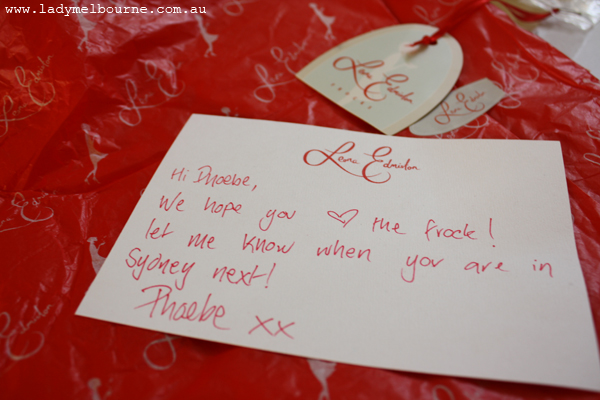 www.ladymelbourne.com.au
Leona Edmiston
FROCKS
Leona Edmiston
Leona Edmiston
Hi Phoebe,
We hope you ♡ the frock!
let me know when you are in
Sydney next!
Phoebe xx